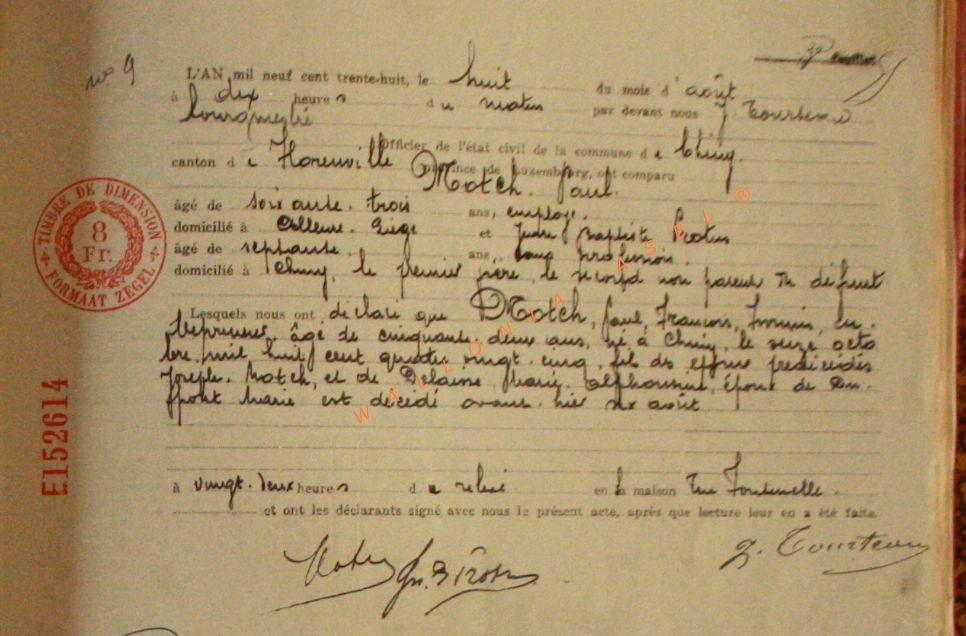 no 9
L'AN mil neuf cent trente-huit, le huit du mois d'août
à dix heures du matin par devant nous J. Tourteau
bourgmestre
Officier de l'état civil de la commune de Chiny.
canton de Florenville province de Luxembourg, ont comparu
Motch. Paul.
âgé de soixante. trois ans, employé.
domicilié à Alleur. Liège et Baptiste
âgé de septante. ans, sans profession.
domicilié à Chiny, le premier frère, le second non parent du défunt
Lesquels nous ont déclaré que Motch, Paul, François, Firmin, en-
trepreneur, âgé de cinquante deux ans, né à Chiny, le seize octo
bre mil huit cent quatre vingt. cinq. fils des époux prédécédés
Joseph. Motch, et de Delaisse, Marie, Alphonsine, époux de
Marie est décédé avant. hier six août
à vingt. deux heures de relevé en la maison rue Fontenelle.
et ont les déclarants signé avec nous le présent acte, après que lecture leur en a été faite.
TIMBRE DE DIMENSION
8
Fr.
FORMAAT ZEGEL
E152614
J. Tourteau